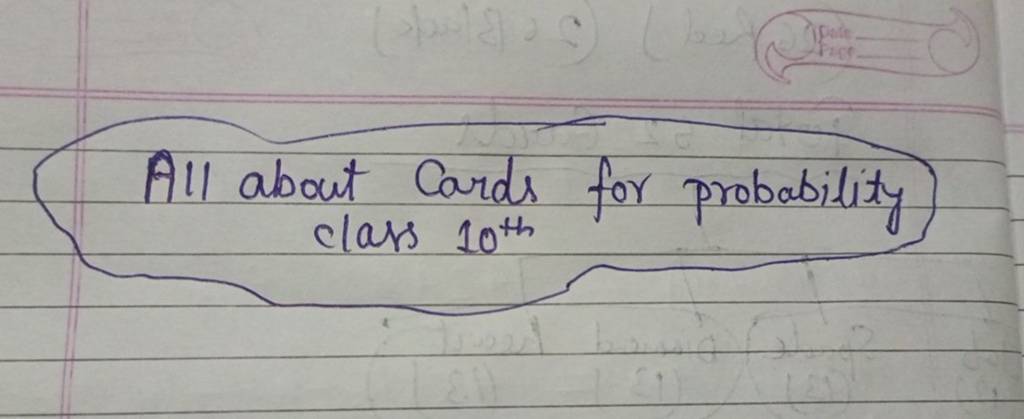 Date
Page
All about Cards for probability
class 10th